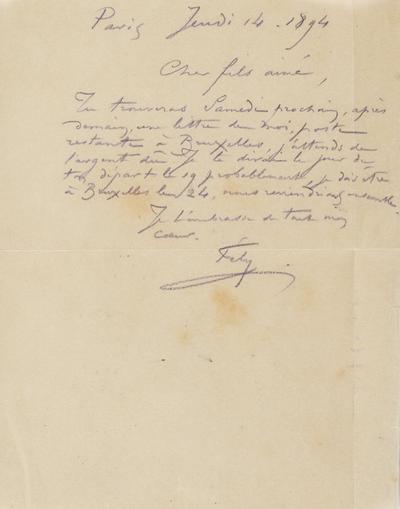 Paris Jeudi 14. 1894
Cher fils aimé,
Tu trouveras Samedi prochain, après
demain, une lettre de moi, poste
restante à Bruxelles, j'attends de
l'argent Je te dirai le jour de
ton départ le 19 probablement, je dois être
à Bruxelles le 24, nous reviendrons ensemble.
Je t'embrasse de tout mon
cœur.
Fély